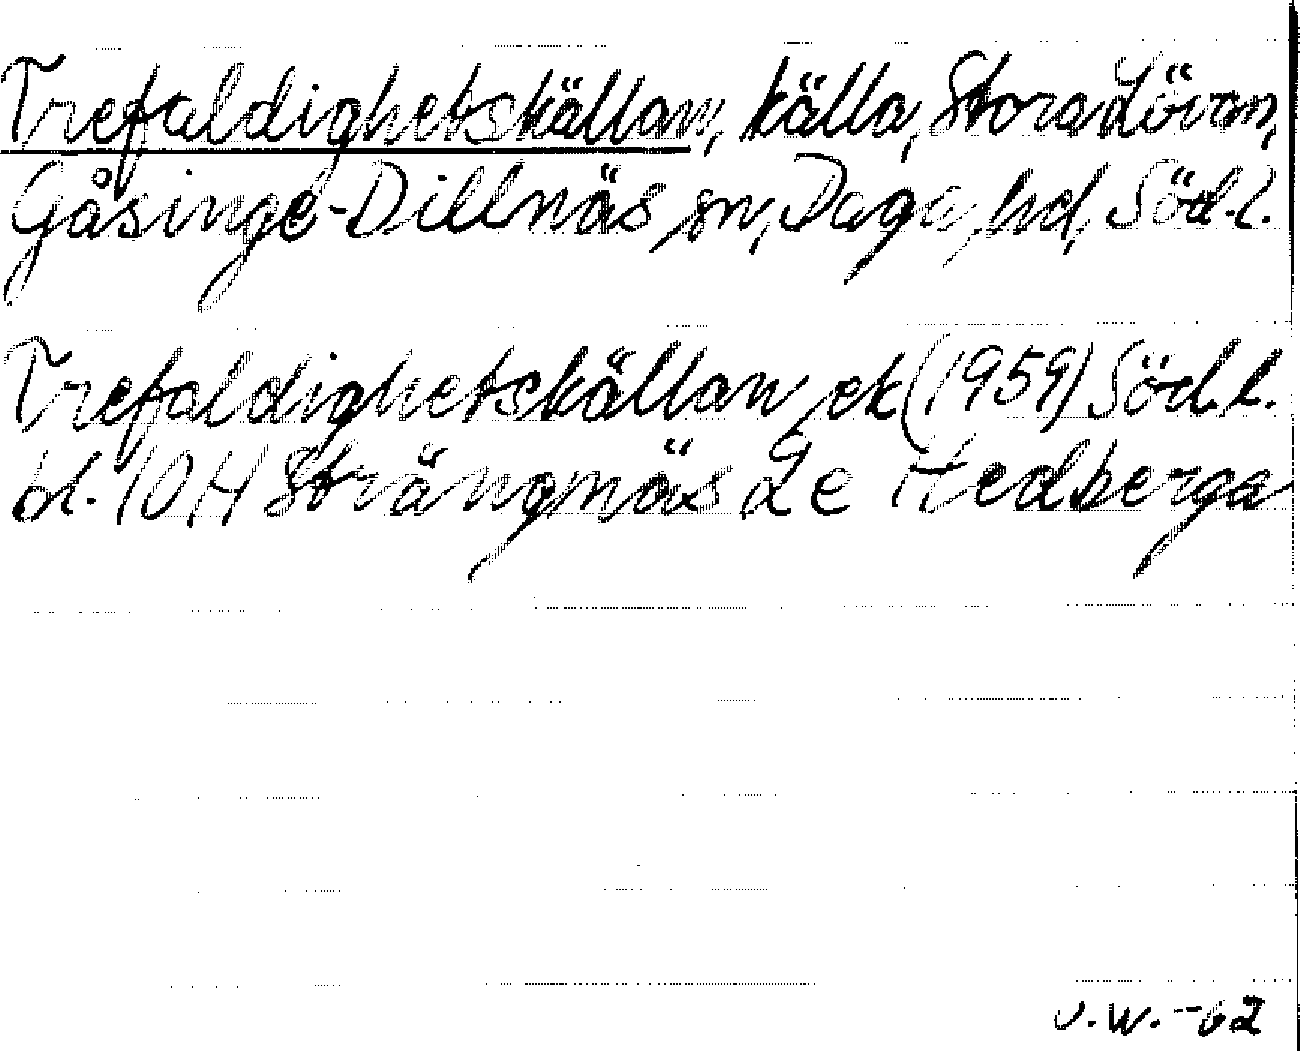 Trefaldighetskällan, källa, Stora Lövan,
Gåsinge-Dillnäs sn, Daga hd, Söd.l.
Trefaldighetskällan ek (1959) Söd.l.
bl. 10 H Strängnäs 2e Hedberga
J.W.-62